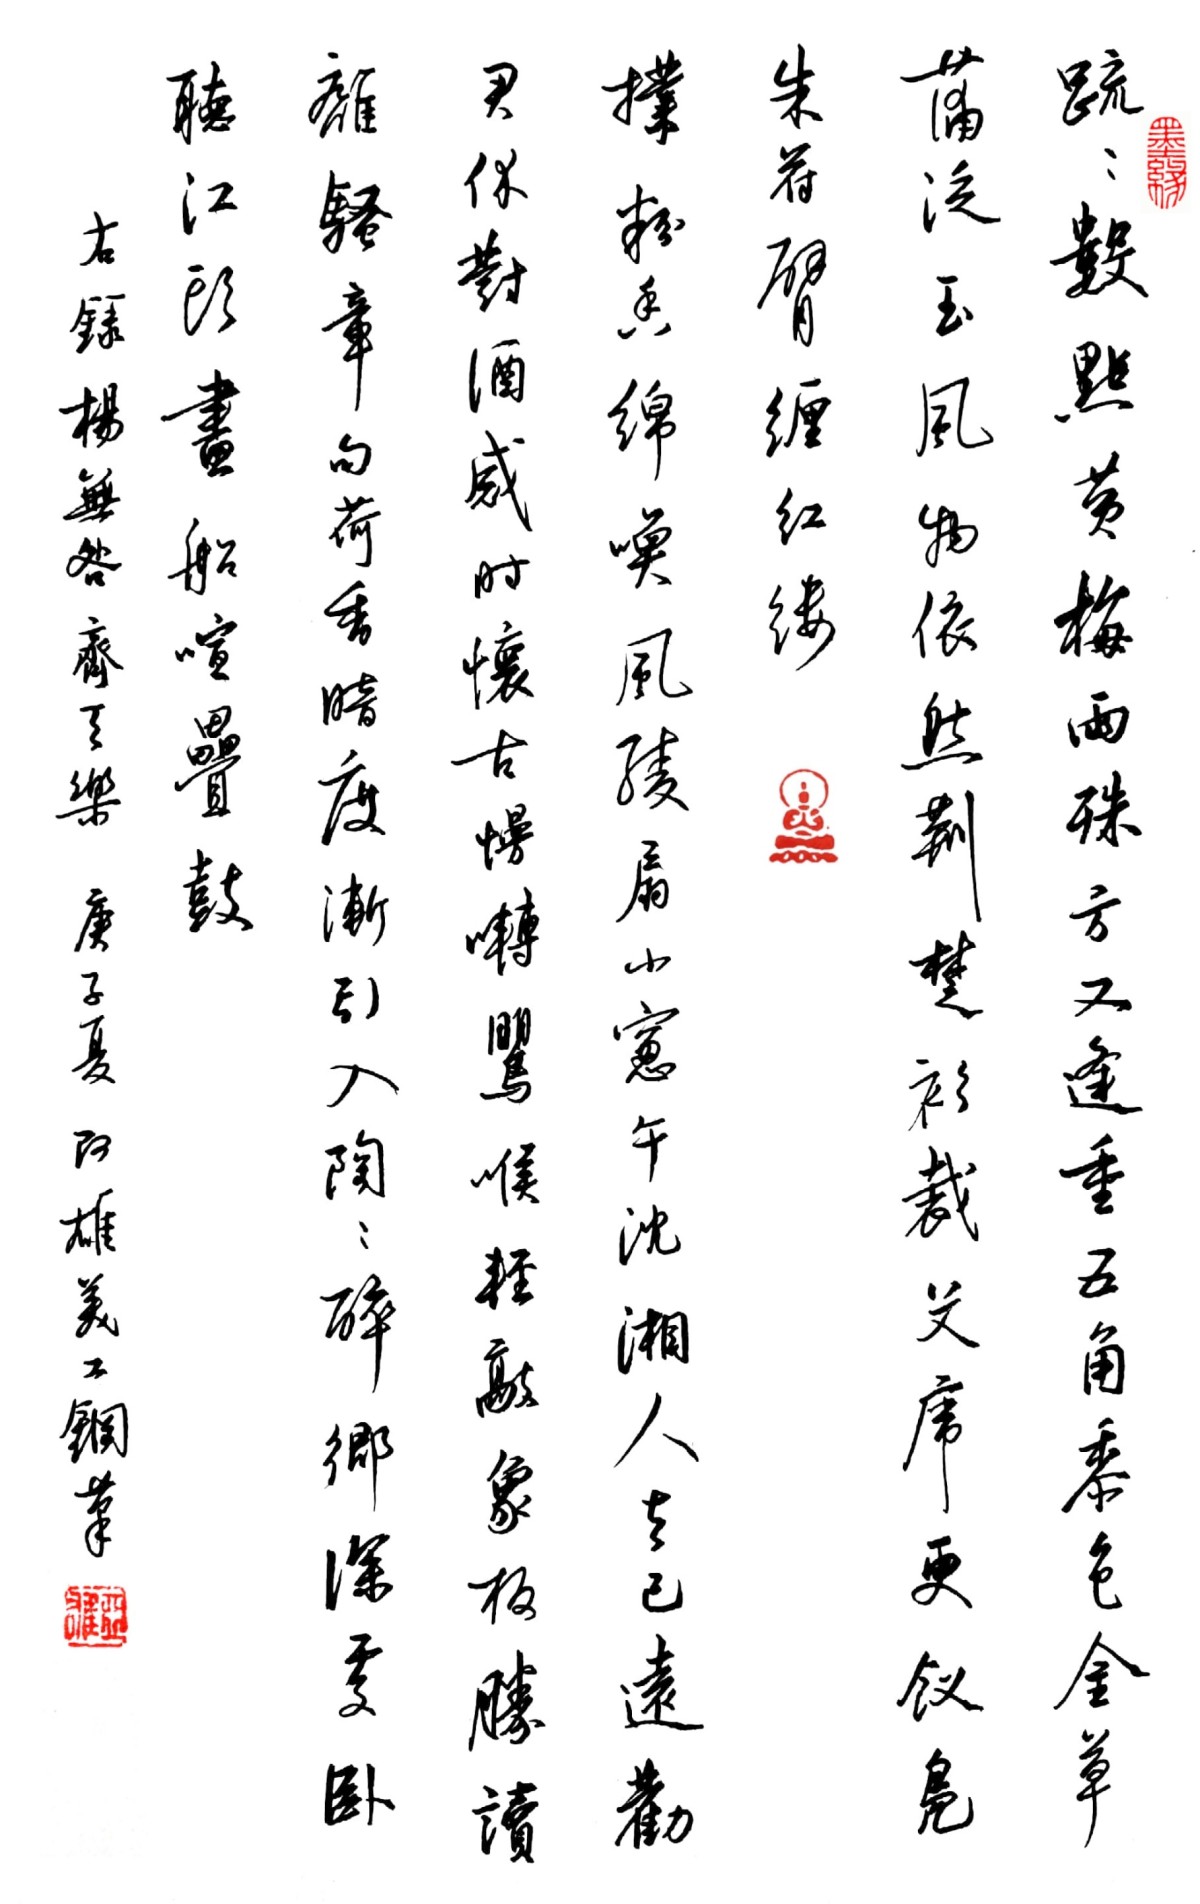 疏〻數點黄梅雨殊方又逢重五角黍包金草
蒲泛玉風物依然荆楚衫裁艾虎更釵凫
朱符臂缠红缕
撲粉香綿唤風綾扇小窗午沈湘人去已遠勸
君休對酒感时懷古慢囀鶯喉輕敲象板勝讀
離騷章句荷香暗度漸引入陶〻醉鄉深處卧
聽江頭畫船喧疊鼓
右錄楊無咎齊天樂 庚子夏 阿雄美工鋼筆
墨緣